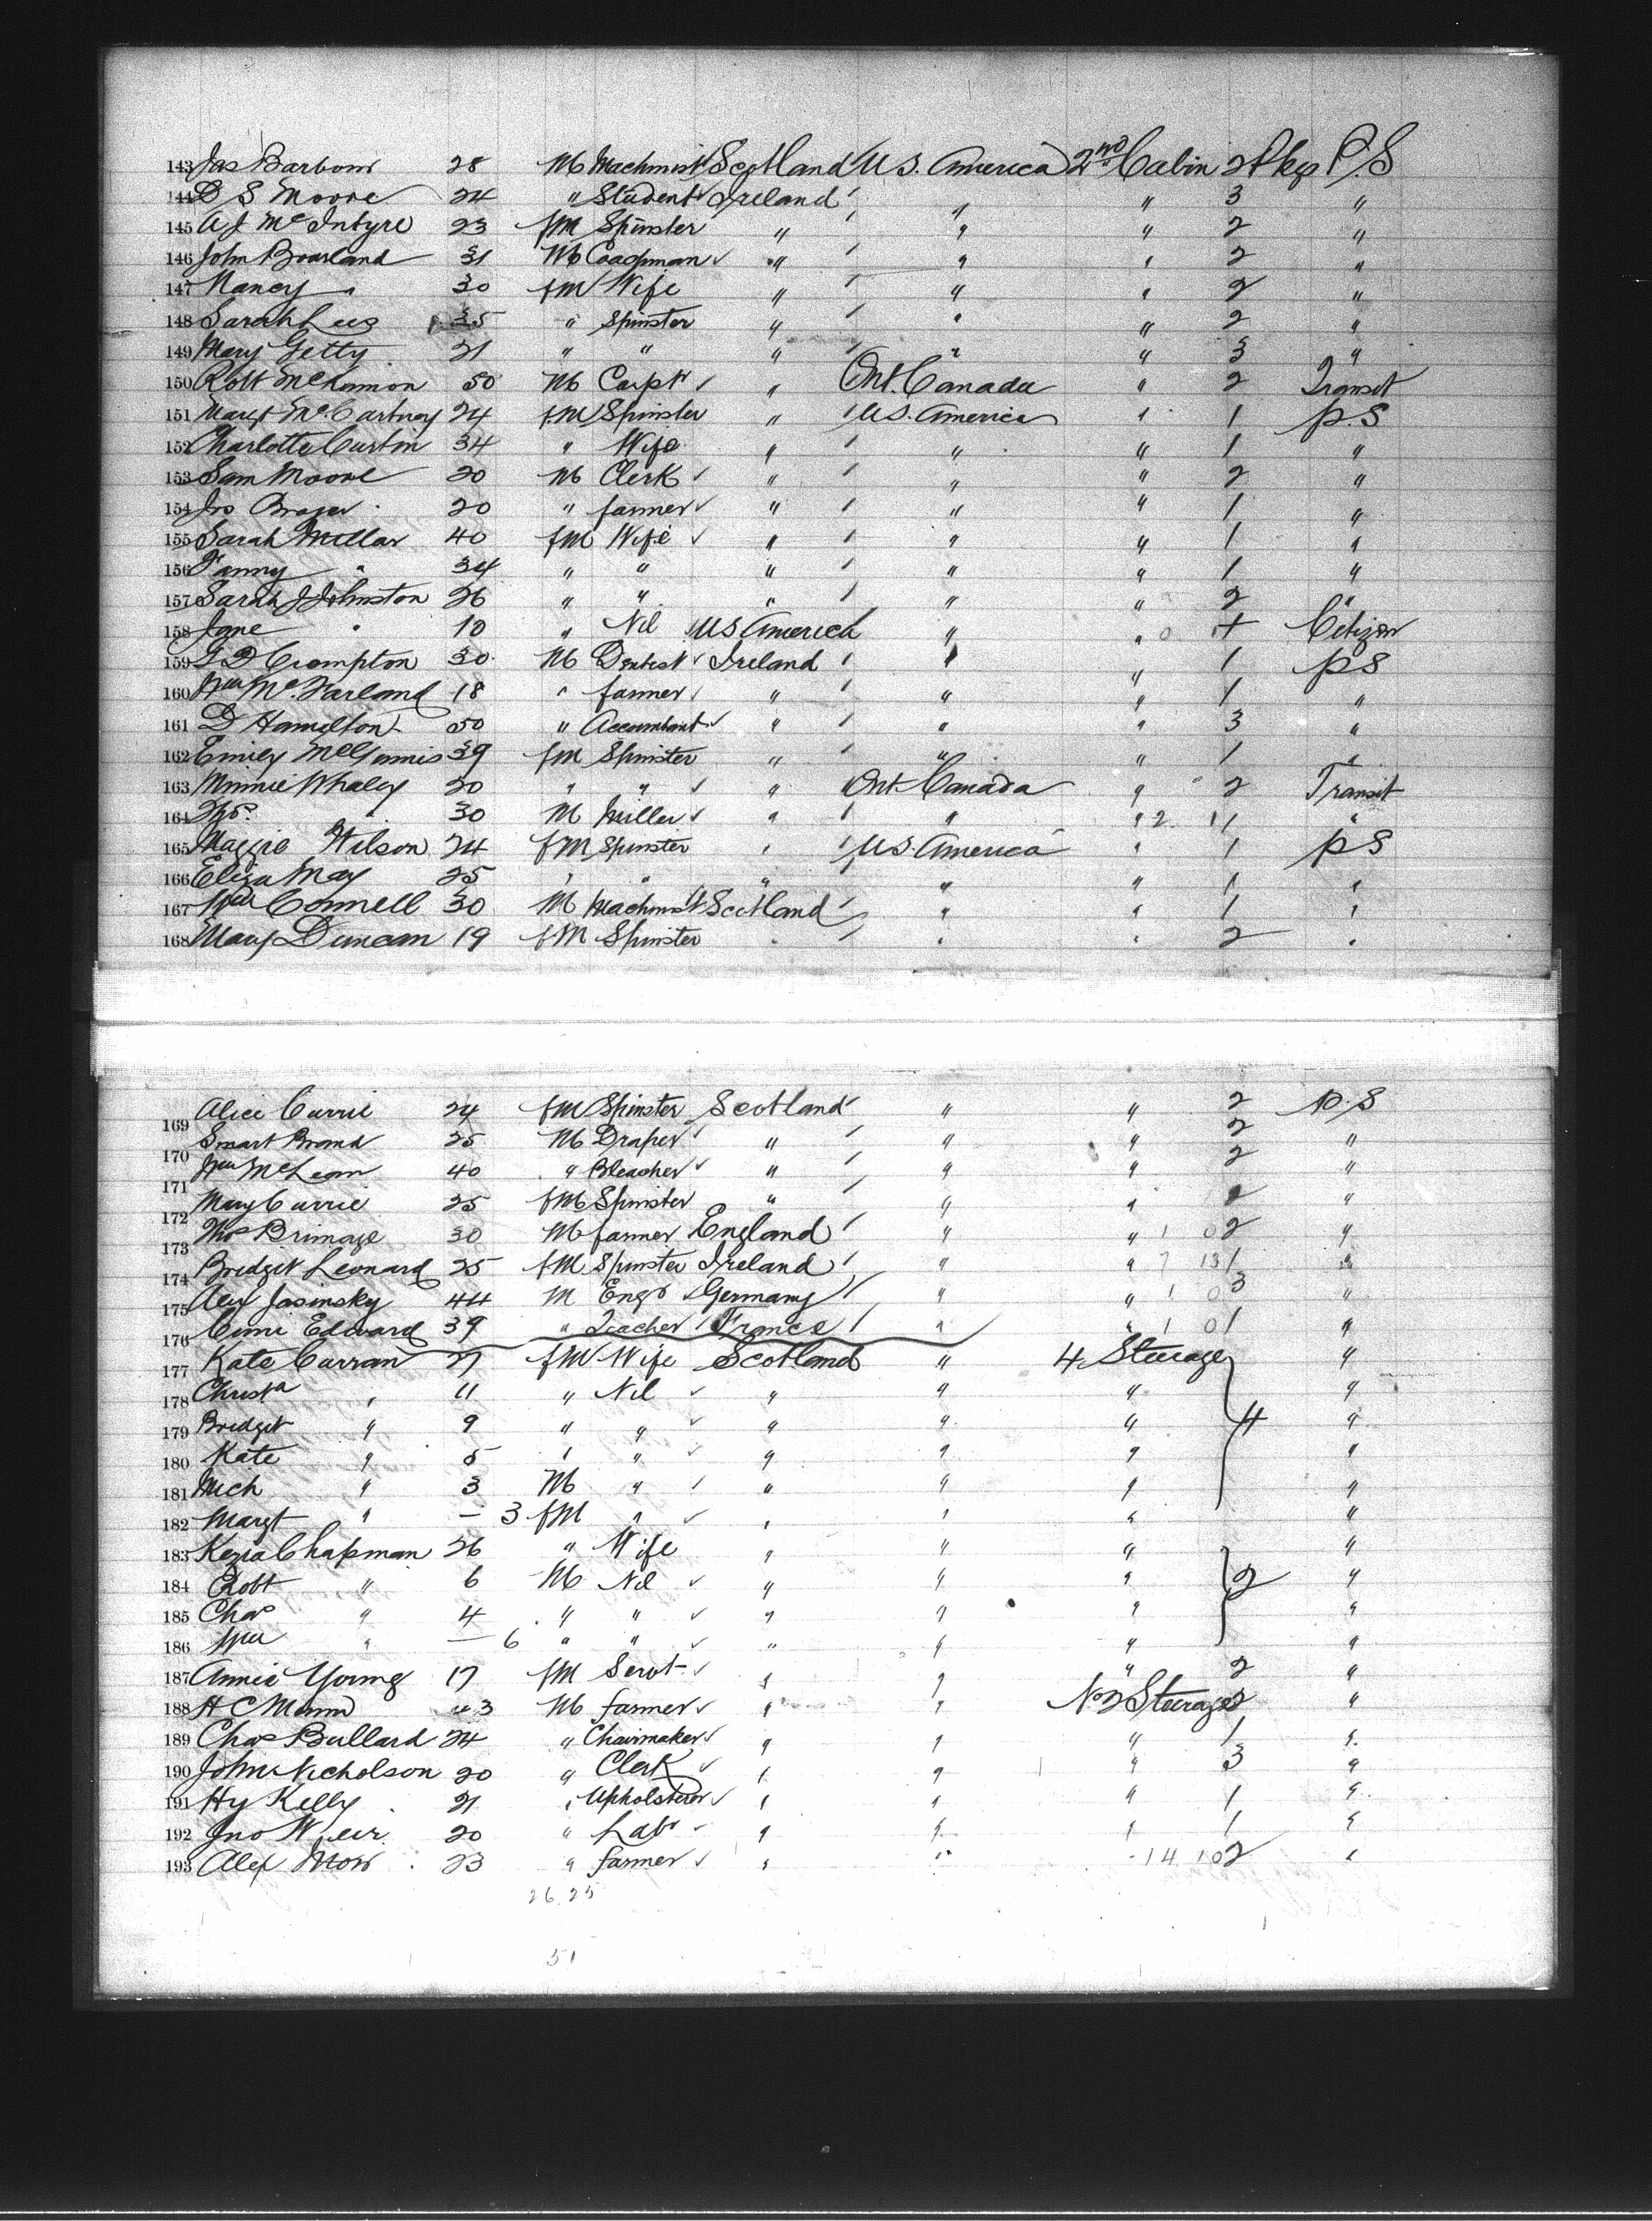 143 Jas Barbour 28 M Machinist Scotland U.S. America 2nd Cabin 2 Pkgs P.S
144 D S Moore 24 " Student Ireland " " 3 "
145 A J McIntyre 23 fM Spinster " " " 2 "
146 John Boarland 31 M Coachman " " " 2 "
147 Nancy " 30 fM Wife " " " 2 "
148 Sarah Lees 35 " Spinster " " " 2 "
149 Mary Getty 21 " " " " " 3 "
150 Robt McKinnon 50 M Carpt " Ont. Canada " 2 Transit
151 Margt McCartney 24 fM Spinster " U.S. America " 1 P.S
152 Charlotte Curtin 34 " Wife " " " 1 "
153 Sam Moore 20 M Clerk " " " 2 "
154 Jno 20 " farmer " " " 1 "
155 Sarah Millar 40 fM Wife " " " 1 "
156 Fanny " 34 " " " " " 1 "
157 Sarah J Johnston 26 " " " " " 2 "
158 Jane " 10 " Nil US America " " + Citizen
159 Crompton 30 M Dentist Ireland " " 1 PS
160 Wm McFarland 18 " farmer " " " 1 "
161 D Hamilton 50 " Accountant " " " 3 "
162 Emily McGinnis 39 fM Spinster " " " 1 "
163 Minnie Whaley 20 " " " Ont Canada " 2 Transit
164 Thos " 30 M Miller " " " 2 1 1 "
165 Maggie Wilson 24 fM Spinster " U.S. America " 1 PS
166 Eliza May 25 " " " " " 1 "
167 Wm Connell 30 M Machinist Scotland " " 1 "
168 Mary Duncan 19 fM Spinster " " " 2 "
169 Alice Currie 24 fM Spinster Scotland " " 2 P.S
170 Smart Brand 25 M Draper " " " 2 "
171 Wm McLean 40 " Bleacher " " " 2 "
172 Mary Currie 25 fM Spinster " " " 2 "
173 Thos Brimage 30 M farmer England " " 1 0 2 "
174 Bridget Leonard 25 fM Spinster Ireland " " 7 13 1 "
175 Alex Jasinsky 44 M Engr Germany " " 1 0 3 "
176 Edward 39 " Teacher France " " 1 0 1 "
177 Kate Curran 27 fM Wife Scotland " 4 Steerage "
178 Christa " 11 " Nil " " " "
179 Bridget " 9 " " " " " 4 "
180 Kate " 5 " " " " " "
181 Mich " 3 M " " " " "
182 Margt " – 3 fM " " " " "
183 Kezia Chapman 26 " Wife " " " "
184 Robt " 6 M Nil " " " 2 "
185 Chas " 4 " " " " " "
186 Wm " – 6 " " " " " "
187 Annie Young 17 fM Servt " " " 2 "
188 H C Mann 43 M farmer " " No 2 Steerage 2 "
189 Chas Bullard 24 " Chairmaker " " " 1 "
190 John Nicholson 20 " Clerk " " " 3 "
191 Hy Kelly 21 " Upholsterer " " " 1 "
192 Jno Weir 20 " Labr " " " 1 "
193 Alex 23 " farmer " " " 14 10 2 "
26 25
51